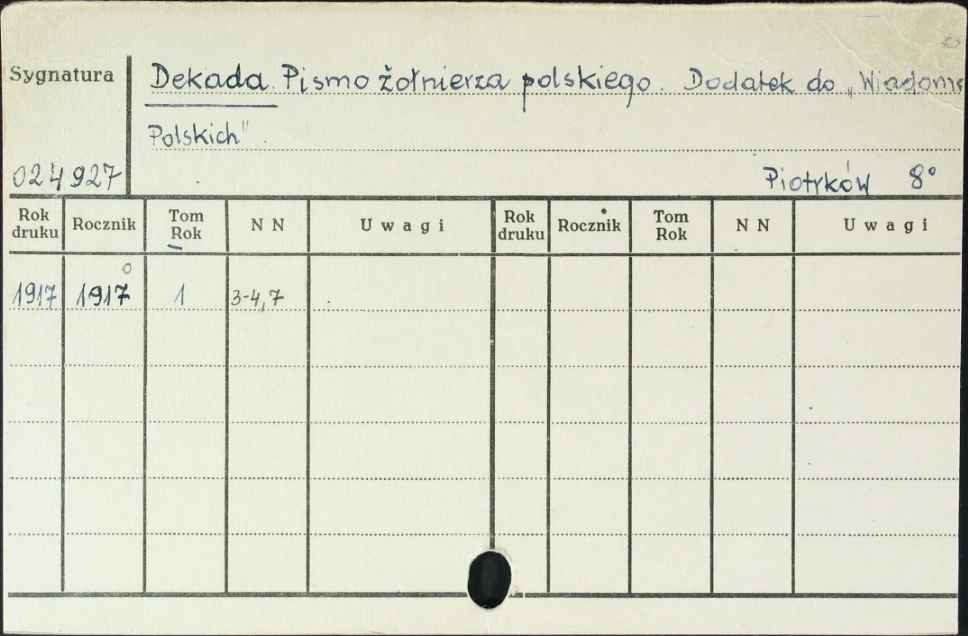 Sygnatura
Dekada. Pismo żołnierza polskiego. Dodatek do „Wiadomo
Polskich".
024927
Piotrków 8°
Rok druku Rocznik Tom Rok NN Uwagi Rok druku Rocznik Tom Rok NN Uwagi
1917 1917 1 3-4,7